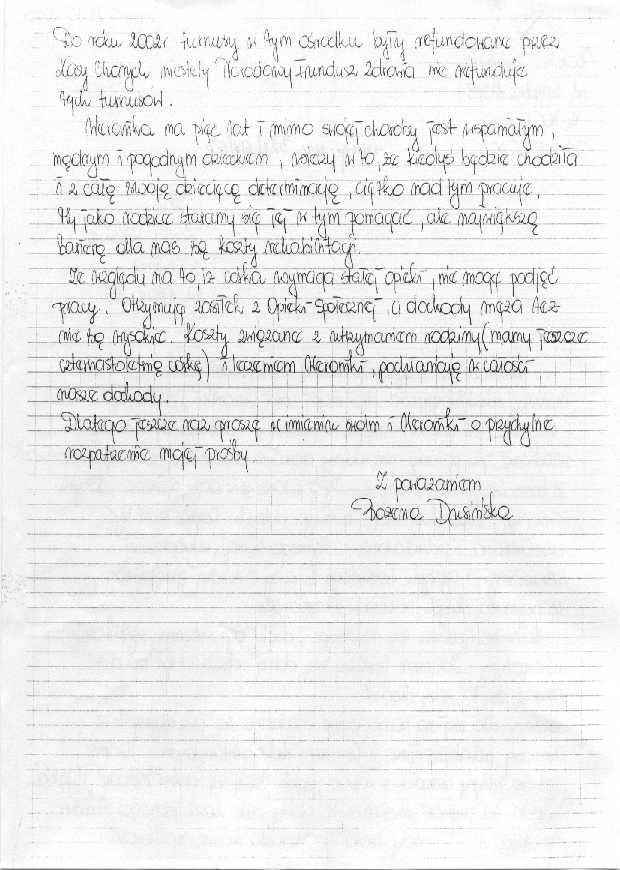 Do roku 2002r turnusy w tym ośrodku były refundowane przez
Kasy Chorych niestety Narodowy Fundusz Zdrowia nie refunduje
tych turnusów.
Weronika ma pięć lat i mimo swojej choroby jest wspaniałym,
mądrym i pogodnym dzieckiem, wierzy w to, że kiedyś będzie chodziła
i z całą swoją dziecięcą determinacją, ciężko nad tym pracuje,
My jako rodzice staramy się jej w tym pomagać, ale największą
barierą dla nas są koszty rehabilitacji.
Ze względu na to, iż córka wymaga stałej opieki, nie mogę podjąć
pracy. Otrzymuję zasiłek z Opieki Społecznej, a dochody męża też
nie są wysokie. Koszty związane z utrzymaniem rodziny (mamy jeszcze
czternastoletnią córkę) i leczeniem Weroniki, pochłaniają w całości
nasze dochody.
Dlatego jeszcze raz proszę w imieniu swoim i Weroniki o przychylne
rozpatrzenie mojej prośby.
Z poważaniem
Bożena